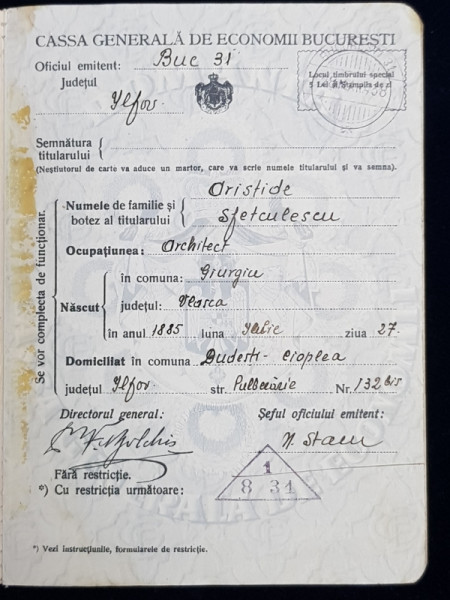 CASSA GENERALĂ DE ECONOMII BUCUREȘTI
Oficiul emitent: Buc 31
Județul
Ilfov
Locul timbrului special
5 Lei și ștampila de zi
Semnătura
titularului
(Neștiutorul de carte va aduce un martor, care va scrie numele titularului și va semna).
Se vor complecta de funcționar.
Numele de familie și
botez al titularului
Aristide
Sfetculescu
Ocupațiunea: Architect
Născut
în comuna: Giurgiu
județul: Vlasca
în anul 1885 luna Iulie ziua 27.
Domiciliat în comuna Dudesti-Cioplea
județul Ilfov str. Pulberărie Nr. 132 bis
Directorul general: Șeful oficiului emitent:
N. Stam
Fără restricție.
*) Cu restricția următoare:
1
8 34
*) Vezi instrucțiunile, formularele de restricție.